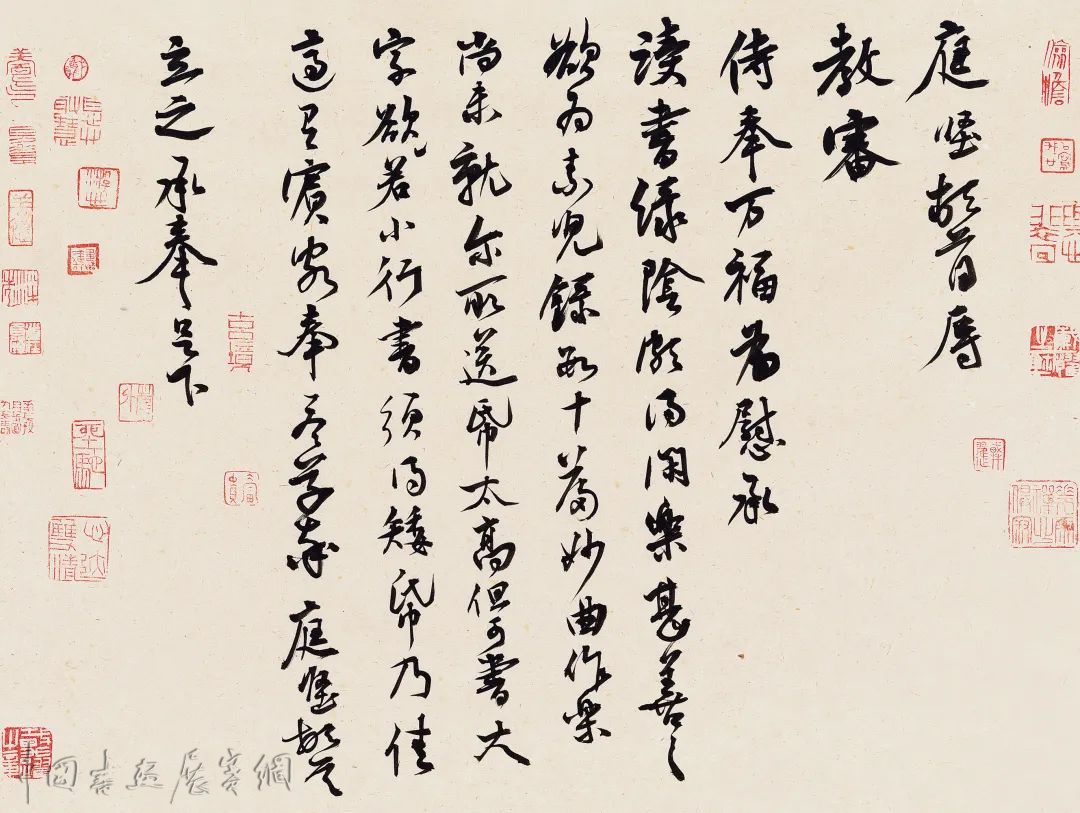 庭堅頓首辱
教審
侍奉万福為慰承
讀書緑陰頗得閑樂甚善〻
欲為素兒錄數十篇妙曲作樂
尚未就尔所送帋太高但可書大
字欲若小行書須得矮帋乃佳
適有賓客奉答草率庭堅頓首
立之承奉足下
中國書法展賽網